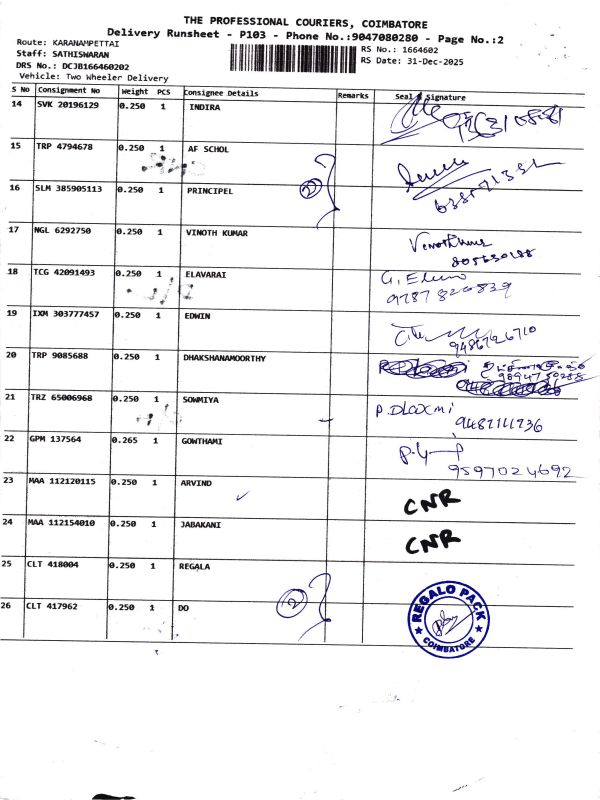 THE PROFESSIONAL COURIERS, COIMBATORE
Delivery Runsheet - P103 - Phone No.:9047080280 - Page No.:2
Route: KARANAMPETTAI
Staff: SATHISWARAN
DRS No.: DCJB166460202
Vehicle: Two Wheeler Delivery
RS No.: 1664602
RS Date: 31-Dec-2025
S No Consignment No Weight PCS Consignee Details Remarks Seal Signature
14 SVK 20196129 0.250 1 INDIRA
15 TRP 4794678 0.250 1 AF SCHOL
16 SLM 385905113 0.250 1 PRINCIPEL
2
17 NGL 6292750 0.250 1 VINOTH KUMAR
18 TCG 42091493 0.250 1 ELAVARAI
9787 820839
19 IXM 303777457 0.250 1 EDWIN
9486726710
20 TRP 9085688 0.250 1 DHAKSHANAMOORTHY
9894730288
21 TRZ 65006968 0.250 1 SOWMIYA
22 GPM 137564 0.265 1 GOWTHAMI
9597024692
23 MAA 112120115 0.250 1 ARVIND CNR
24 MAA 112154010 0.250 1 JABAKANI CNR
25 CLT 418004 0.250 1 REGALA
26 CLT 417962 0.250 1 DO
2
REGALO PACK
COIMBATORE